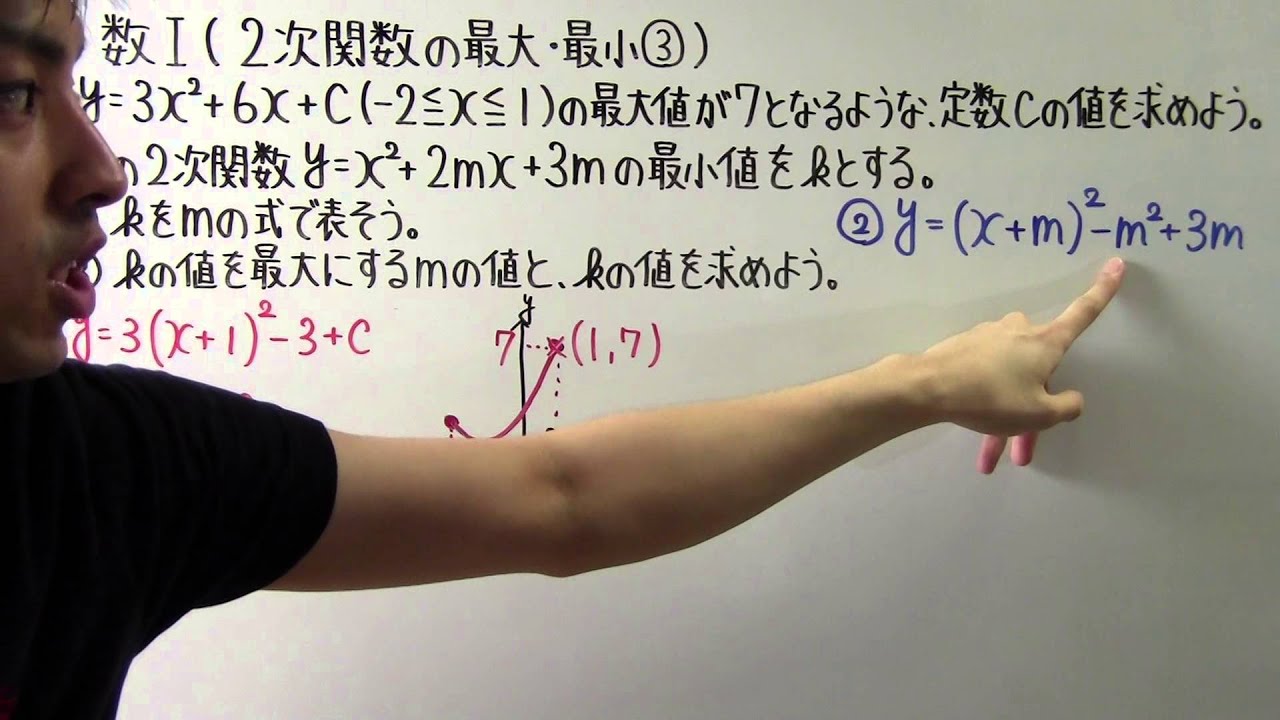 数I(2次関数の最大・最小③)
y=3x²+6x+C(-2≦x≦1)の最大値が7となるような、定数Cの値を求めよう。
の2次関数y=x²+2mx+3mの最小値をkとする。
kをmの式で表そう。
②y=(x+m)²-m²+3m
)kの値を最大にするmの値と、kの値を求めよう。
y=3(x+1)²-3+C
y
7
(1,7)